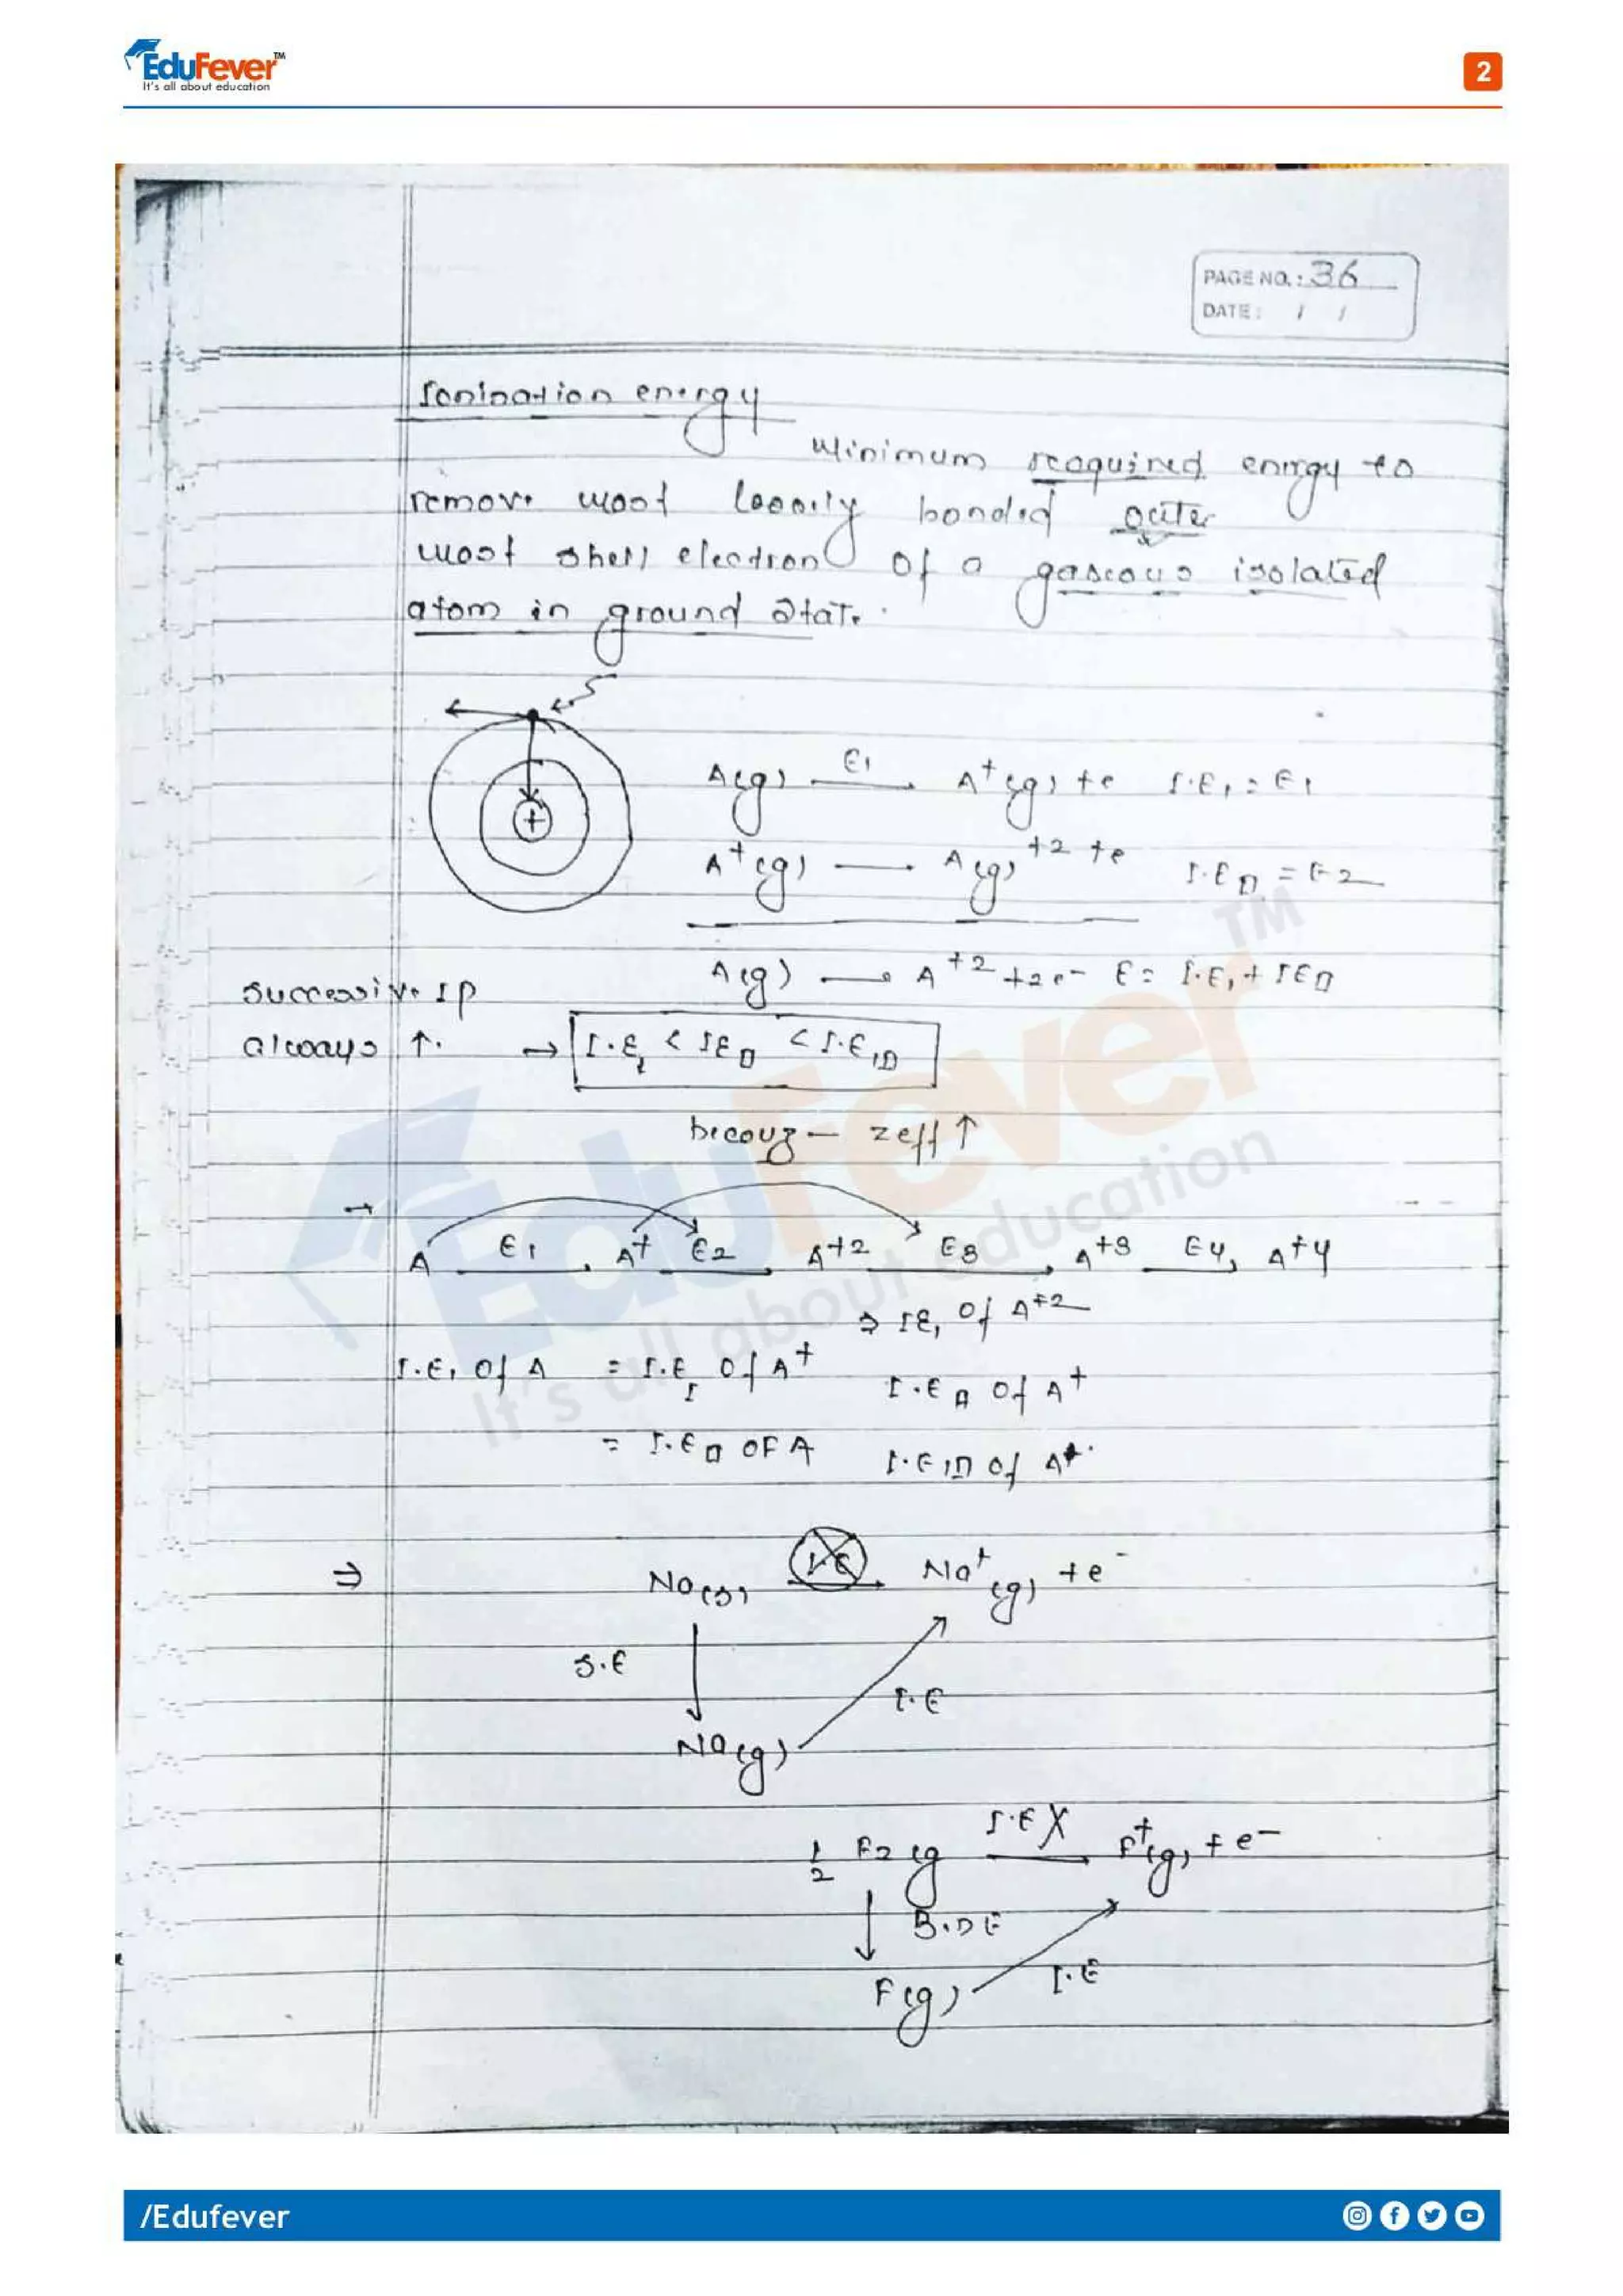 EduFever™
It's all about education
2
PAGE NO.: 36
DATE: / /
Ionization energy
Minimum required energy to
remove most loosely bonded outer
most shell electron of a gaseous isolated
atom in ground state.
+
A(g) E1 → A+(g) + e I.E1 = E1
A+(g) → A(g)+2 + e I.E II = E2
A(g) → A+2 + 2e- E = I.E1 + IE II
Successive IP
always ↑. → I.E I < IE II < I.E III
becouz – zeff ↑
→ A E1 → A+ E2 → A+2 E3 → A+3 E4 → A+4
⇒ IE1 of A+2
I.E1 of A = I.E I of A+ I.E II of A+
= I.E II OF A I.E III of A
⇒ Na(s) I.E → Na+(g) + e-
S.E
I.E
Na(g)
1/2 F2(g I.E X → F+(g) + e-
B.D E
F(g) I.E
EduFever™
It's all about education
/Edufever